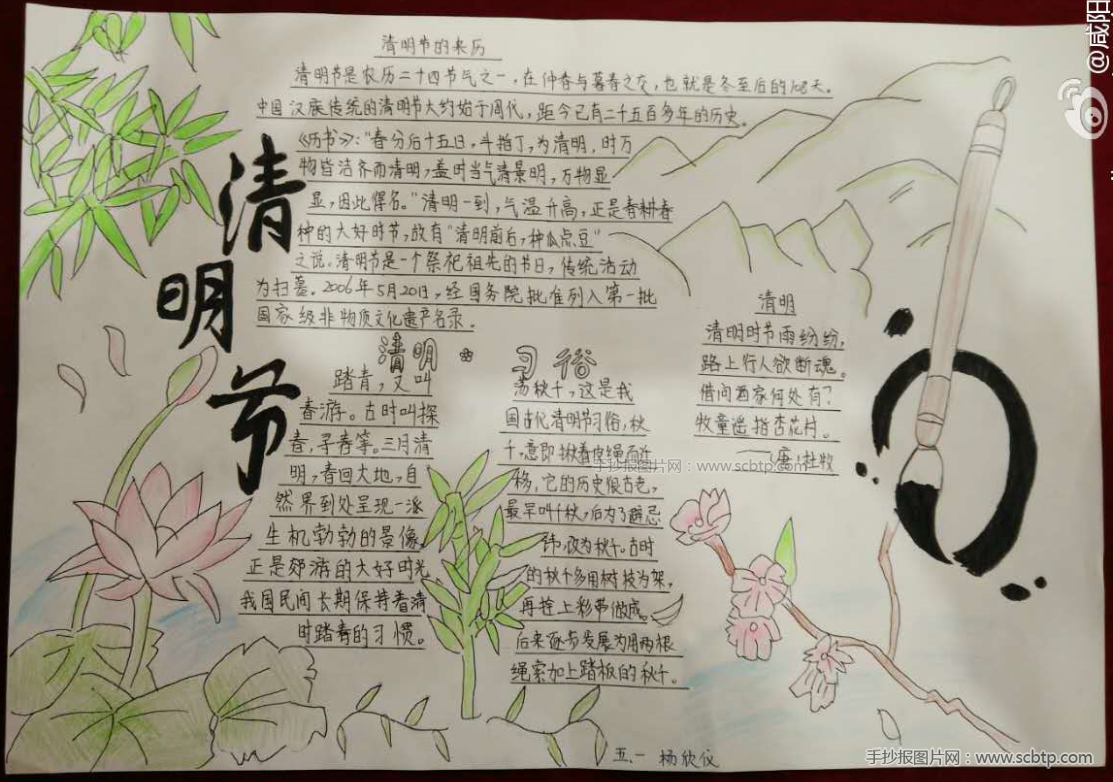 清明节的来历
清明节是农历二十四节气之一,在仲春与暮春之交,也就是冬至后的108天。
中国汉族传统的清明节大约始于周代,距今已有二千五百多年的历史。
《历书》:"春分后十五日,斗指丁,为清明,时万
物皆洁齐而清明,盖时当气清景明,万物显
显,因此得名。"清明一到,气温升高,正是春耕春
种的大好时节,故有"清明前后,种瓜点豆"
之说。清明节是一个祭祀祖先的节日,传统活动
为扫墓。2006年5月20日,经国务院批准列入第一批
国家级非物质文化遗产名录。
清
明
节
清明 习俗
踏青,又叫
春游。古时叫探
春,寻春等。三月清
明,春回大地,自
然界到处呈现一派
生机勃勃的景像,
正是郊游的大好时光
我国民间长期保持着清
时踏青的习惯。
荡秋千,这是我
国古代清明节习俗,秋
千,意即揪着皮绳而迁
移,它的历史很古老,
最早叫千秋,后为了避忌
讳,改为秋千。古时
的秋千多用树枝为架,
再拴上彩带做成。
后来逐步发展为用两根
绳索加上踏板的秋千。
清明
清明时节雨纷纷,
路上行人欲断魂。
借问酒家何处有?
牧童遥指杏花片。
——(唐)杜牧
五.一 杨欣仪
手抄报图片网:www.scbtp.com
手抄报图片网:www.scbtp.com
@咸阳